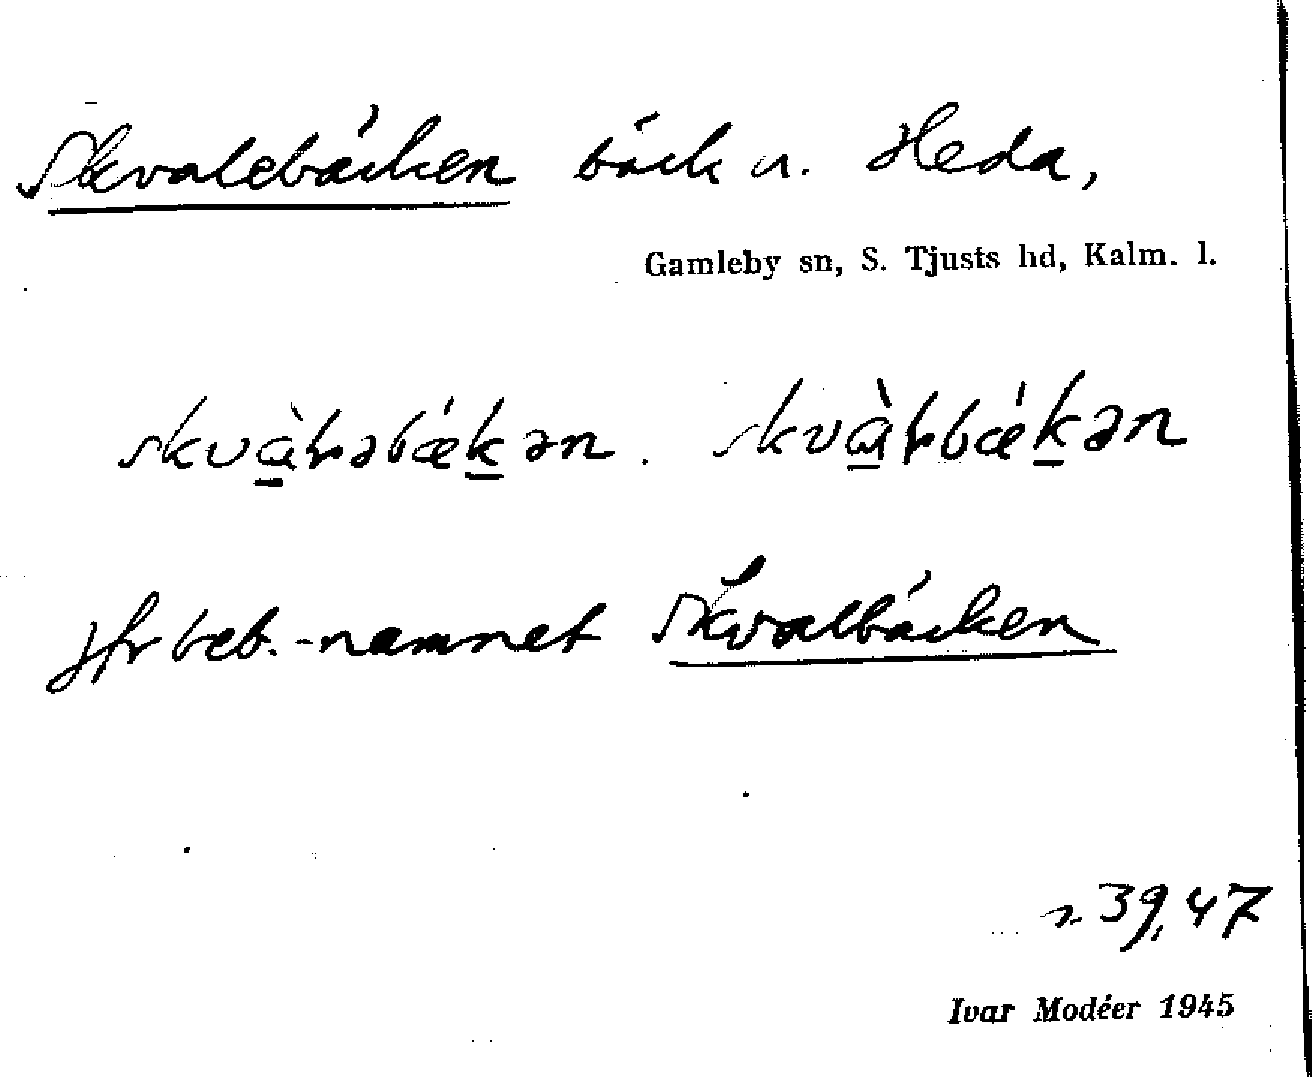 Skvalebäcken bäck n. Heda,
Gamleby sn, S. Tjusts hd, Kalm. l.
skvàɫəbækən. skvàɫbækən
Jfr beb.-namnet Skvalbäcken
s. 39, 47
Ivar Modéer 1945